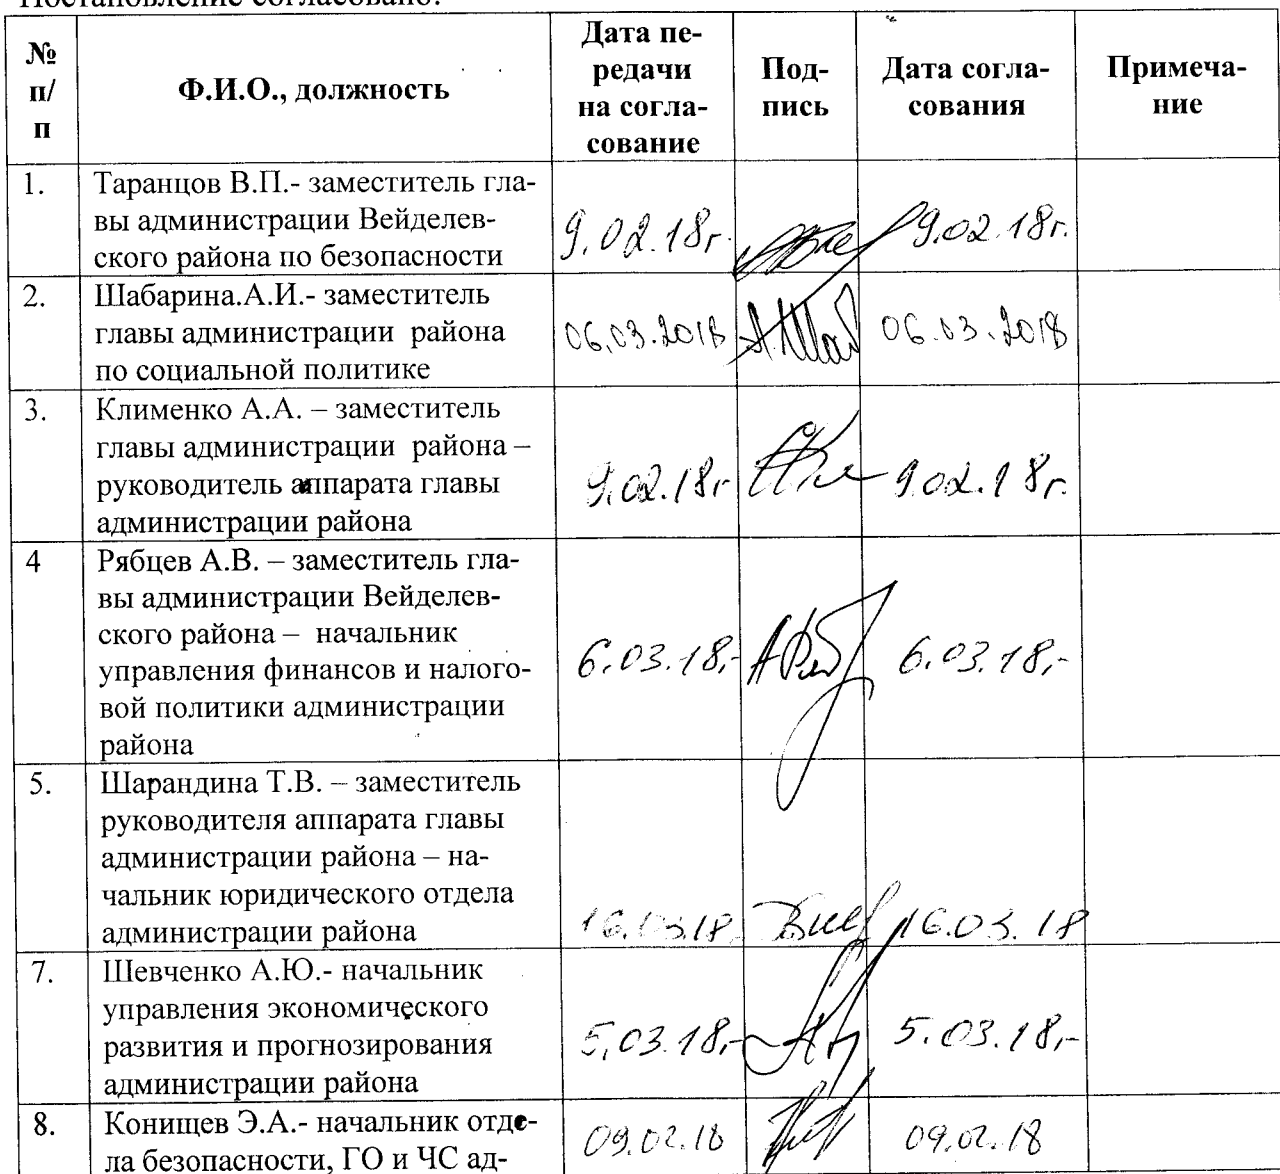 Постановление согласовано:
№ п/п
Ф.И.О., должность
Дата пе-
редачи
на согла-
сование
Под-
пись
Дата согла-
сования
Примеча-
ние
1.
Таранцов В.П.- заместитель гла-
вы администрации Вейделев-
ского района по безопасности
9.02.18г.
9.02.18г.
2.
Шабарина.А.И.- заместитель
главы администрации района
по социальной политике
06.03.2018
06.03.2018
3.
Клименко А.А. – заместитель
главы администрации района –
руководитель аппарата главы
администрации района
9.02.18г
9.02.18г.
4
Рябцев А.В. – заместитель гла-
вы администрации Вейделев-
ского района – начальник
управления финансов и налого-
вой политики администрации
района
6.03.18,-
6.03.18,-
5.
Шарандина Т.В. – заместитель
руководителя аппарата главы
администрации района – на-
чальник юридического отдела
администрации района
16.03.18
16.03.18
7.
Шевченко А.Ю.- начальник
управления экономического
развития и прогнозирования
администрации района
5.03.18,-
5.03.18,-
8.
Конищев Э.А.- начальник отде-
ла безопасности, ГО и ЧС ад-
09.02.18
09.02.18